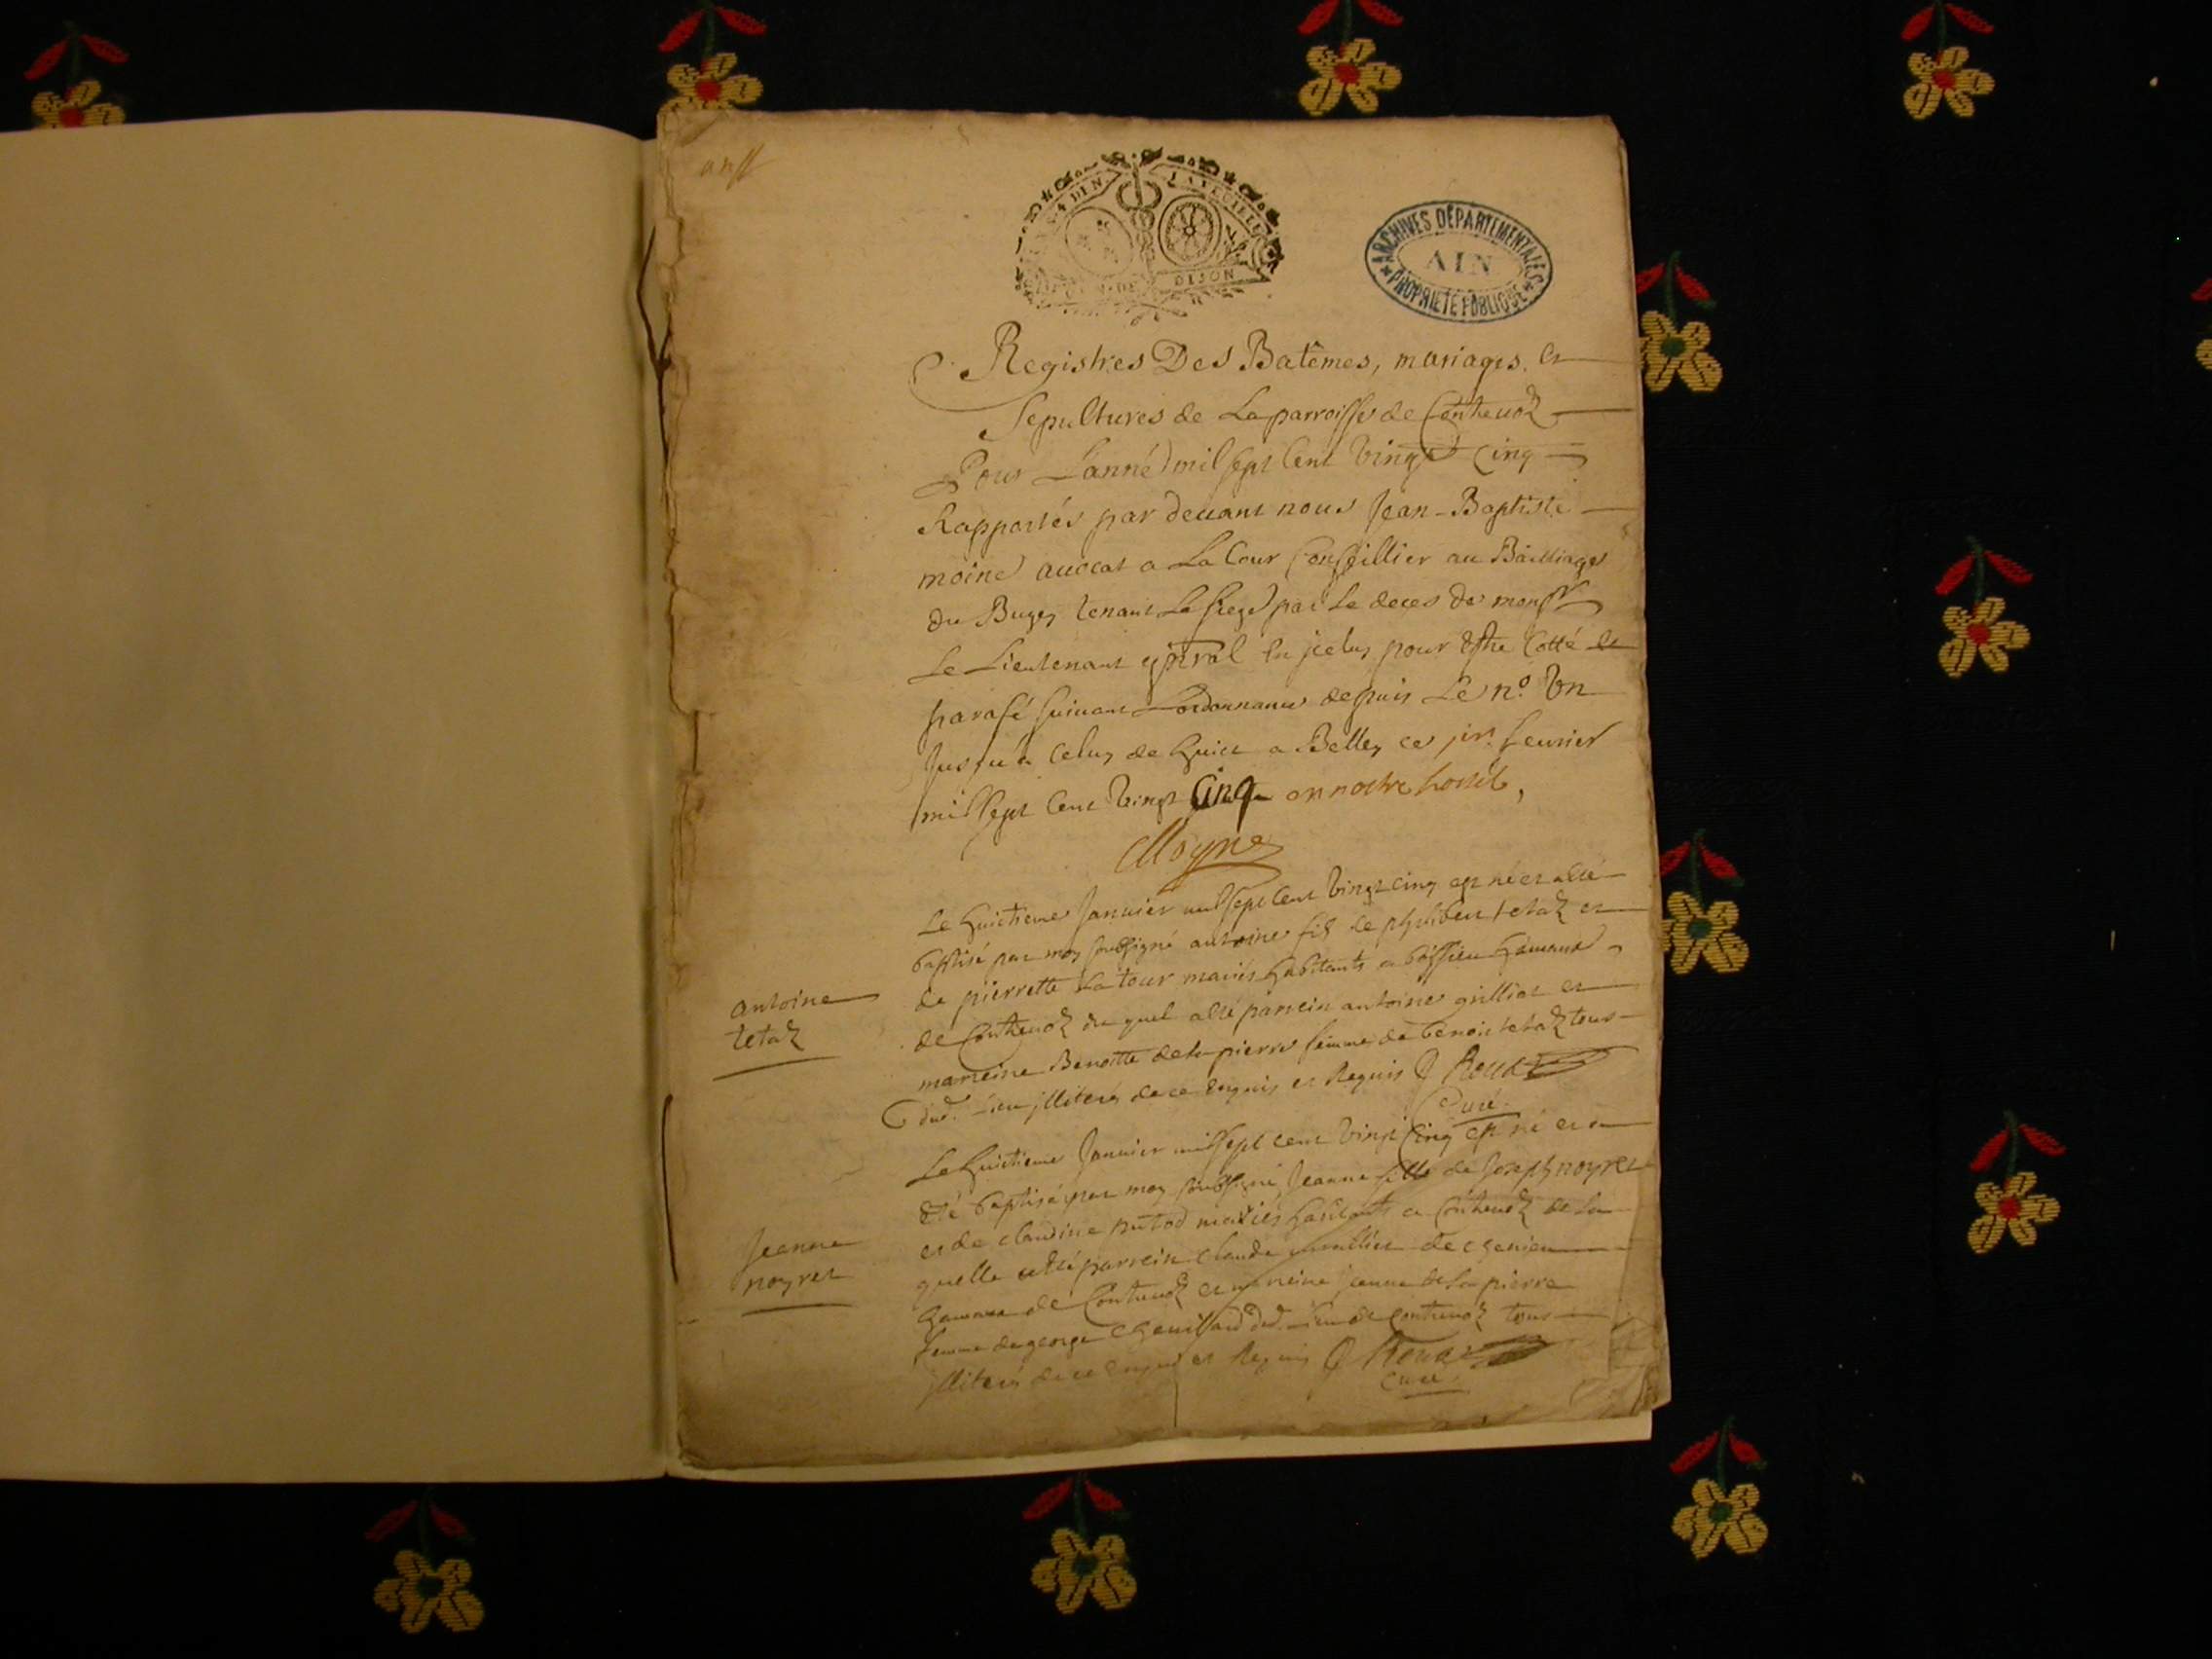 4 DEN.
DIJON
ARCHIVES DÉPARTEMENTALES
AIN
PROPRIÉTÉ PUBLIQUE
Registres Des Batêmes, mariages, et
sepultures de La parroisse de Contrevoz
Pour L'anné mil sept Cent Vingt Cinq
Rapportés par devant nous Jean-Baptiste
moine avocat a La Cour Conseillier au Bailliage
du Bugey tenant Le siege par Le deces de
Le Lieutenant gñral pour Estre Cotté et
parafé suivant L'ordonnance depuis Le nº. Vn
Jusqu'a Celuy de huict a Belley ce fevrier
mil sept Cent Vingt Cinq en nostre hostel,
Moyne
Le huictieme Janvier mil sept Cent Vingt cinq est né et a Eté
baptisé par moy soubsigné antoine fils de philibert tetaz et
de pierrette La tour mariés habitants a
antoine
tetaz
de Contrevoz du quel a Eté parrein antoine grilliet et
marreine Benoitte de la pierre femme de benoit tetaz tous
dud. Lieu jlliterés de ce Enquis et Requis Roux
Curé
Le huictieme Janvier mil sept cent Vingt Cinq est né et a
Eté baptisé par moy soubsigné Jeanne fille de Joseph noyret
et de claudine putod mariés habitants a Contrevoz de La
Jeanne
noyret
quelle a Eté parrein Claude de
hameau de Contrevoz et marreine jeanne de la pierre
femme de george dud. Lieu de Contrevoz tous
jlliterés de ce Enquis et Requis Roux
Curé